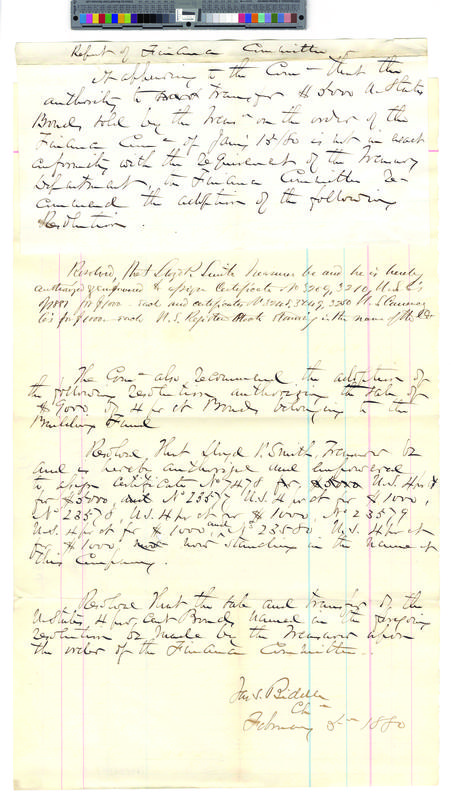 Report of Finance Committee
It appearing to the Com— that the
authority to transfer $5000 U. States
Bonds sold by the Treas— on the order of the
Finance Com— of Jany 15/80 is not in exact
conformity with the requirements of the Treasury
Department, the Finance Committee re-
commend the adoption of the following
Resolution.
Resolved, that Lloyd P. Smith Treasurer be and he is hereby
authorized & empowered to assign Certificates No 3209, 3210, U.S.
for $1000 each and certificates No 3248, 3249, 3250 U.S.
for $1000 each U.S. Register standing in the name of the
The Com— also recommend the adoption of
the following resolution authorizing the sale of
$9000 of 4 pr ct Bonds belonging to the
Building Fund
Resolve, That Lloyd P. Smith, Treasurer be
and is hereby authorized and empowered
to assign Certificate No 7478 U.S. 4 pr ct
for $5000, No 23577 U.S. 4 pr ct for $1000,
No 23578, U.S. 4 pr ct for $1000, No 23579
U.S. 4 pr ct for $1000 and No 23580 U.S. 4 pr ct
for $1000 now standing in the name of
this Company.
Resolve That the sale and transfer of the
U States 4 per cent Bonds named in the foregoing
resolution be made by the Treasurer upon
the order of the Finance Committee.
Jas. S. Biddle
Ch—
February 1880